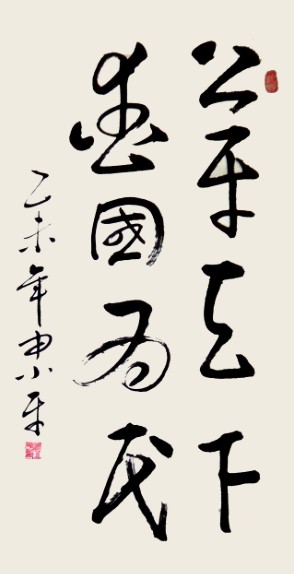 公平天下
愛國為民
乙未年申小平